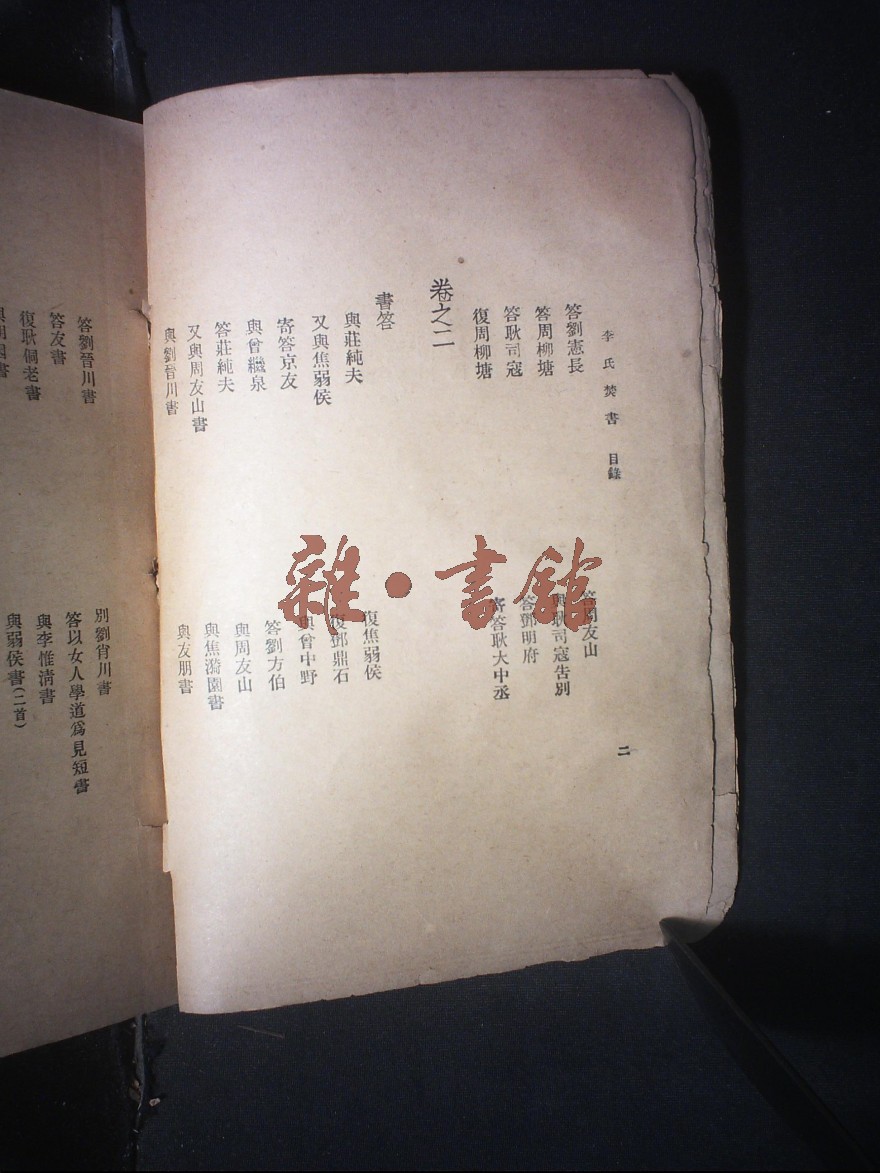 李氏焚書 目錄 二
答劉憲長 答周友山
答周柳塘 與耿司寇告別
答耿司寇 答鄧明府
復周柳塘 寄答耿大中丞
卷之二
書答
與莊純夫 復焦弱侯
又與焦弱侯 復鄧鼎石
寄答京友 與曾中野
與曾繼泉 答劉方伯
答莊純夫 與周友山
又與周友山書 與焦漪園書
與劉晉川書 與友朋書
答劉晉川書 別劉肖川書
答友書 答以女人學道爲見短書
復耿侗老書 與李惟清書
與弱侯書(二首)
雜·書館